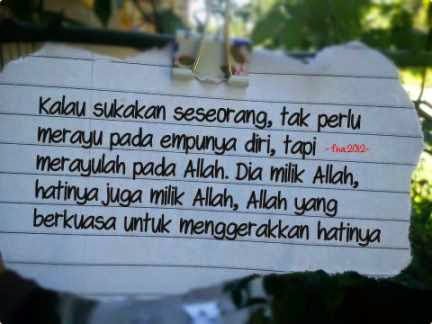 Kalau sukakan seseorang, tak perlu
merayu pada empunya diri, tapi -fna2012-
merayulah pada Allah. Dia milik Allah,
hatinya juga milik Allah, Allah yang
berkuasa untuk menggerakkan hatinya